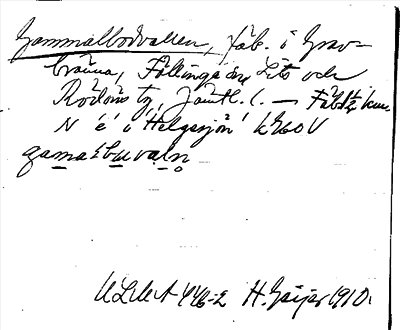 Gammalbodvallen, fäb. i Grav-
bränna, Föllinge sn, Lits och
Rödöns tg, Jämtl. l. — Fäb. ½ km
N è i Helgesjön
gamalbuvaln
ULMA 446:2 H. Geijer 1910.